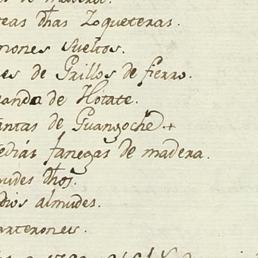 reas dhas Zoqueteras.
rrones sueltos.
es de Grillos de fierro.
ando de Hotate.
antas de Guangoche +
edias fanegas de madera.
mudes dhos.
dios almudes.
arterones.